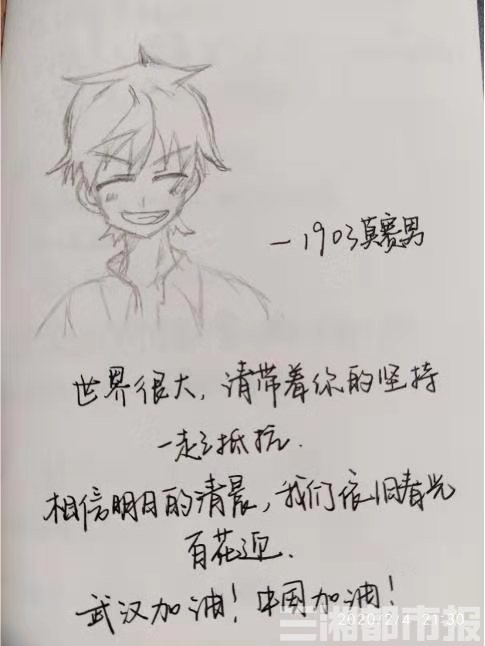 —1903莫赛男
世界很大，请带着你的坚持
一起抵抗.
相信明日的清晨，我们依旧春光
百花迎.
武汉加油！中国加油！
三湘都市报
2020/2/4 21:30